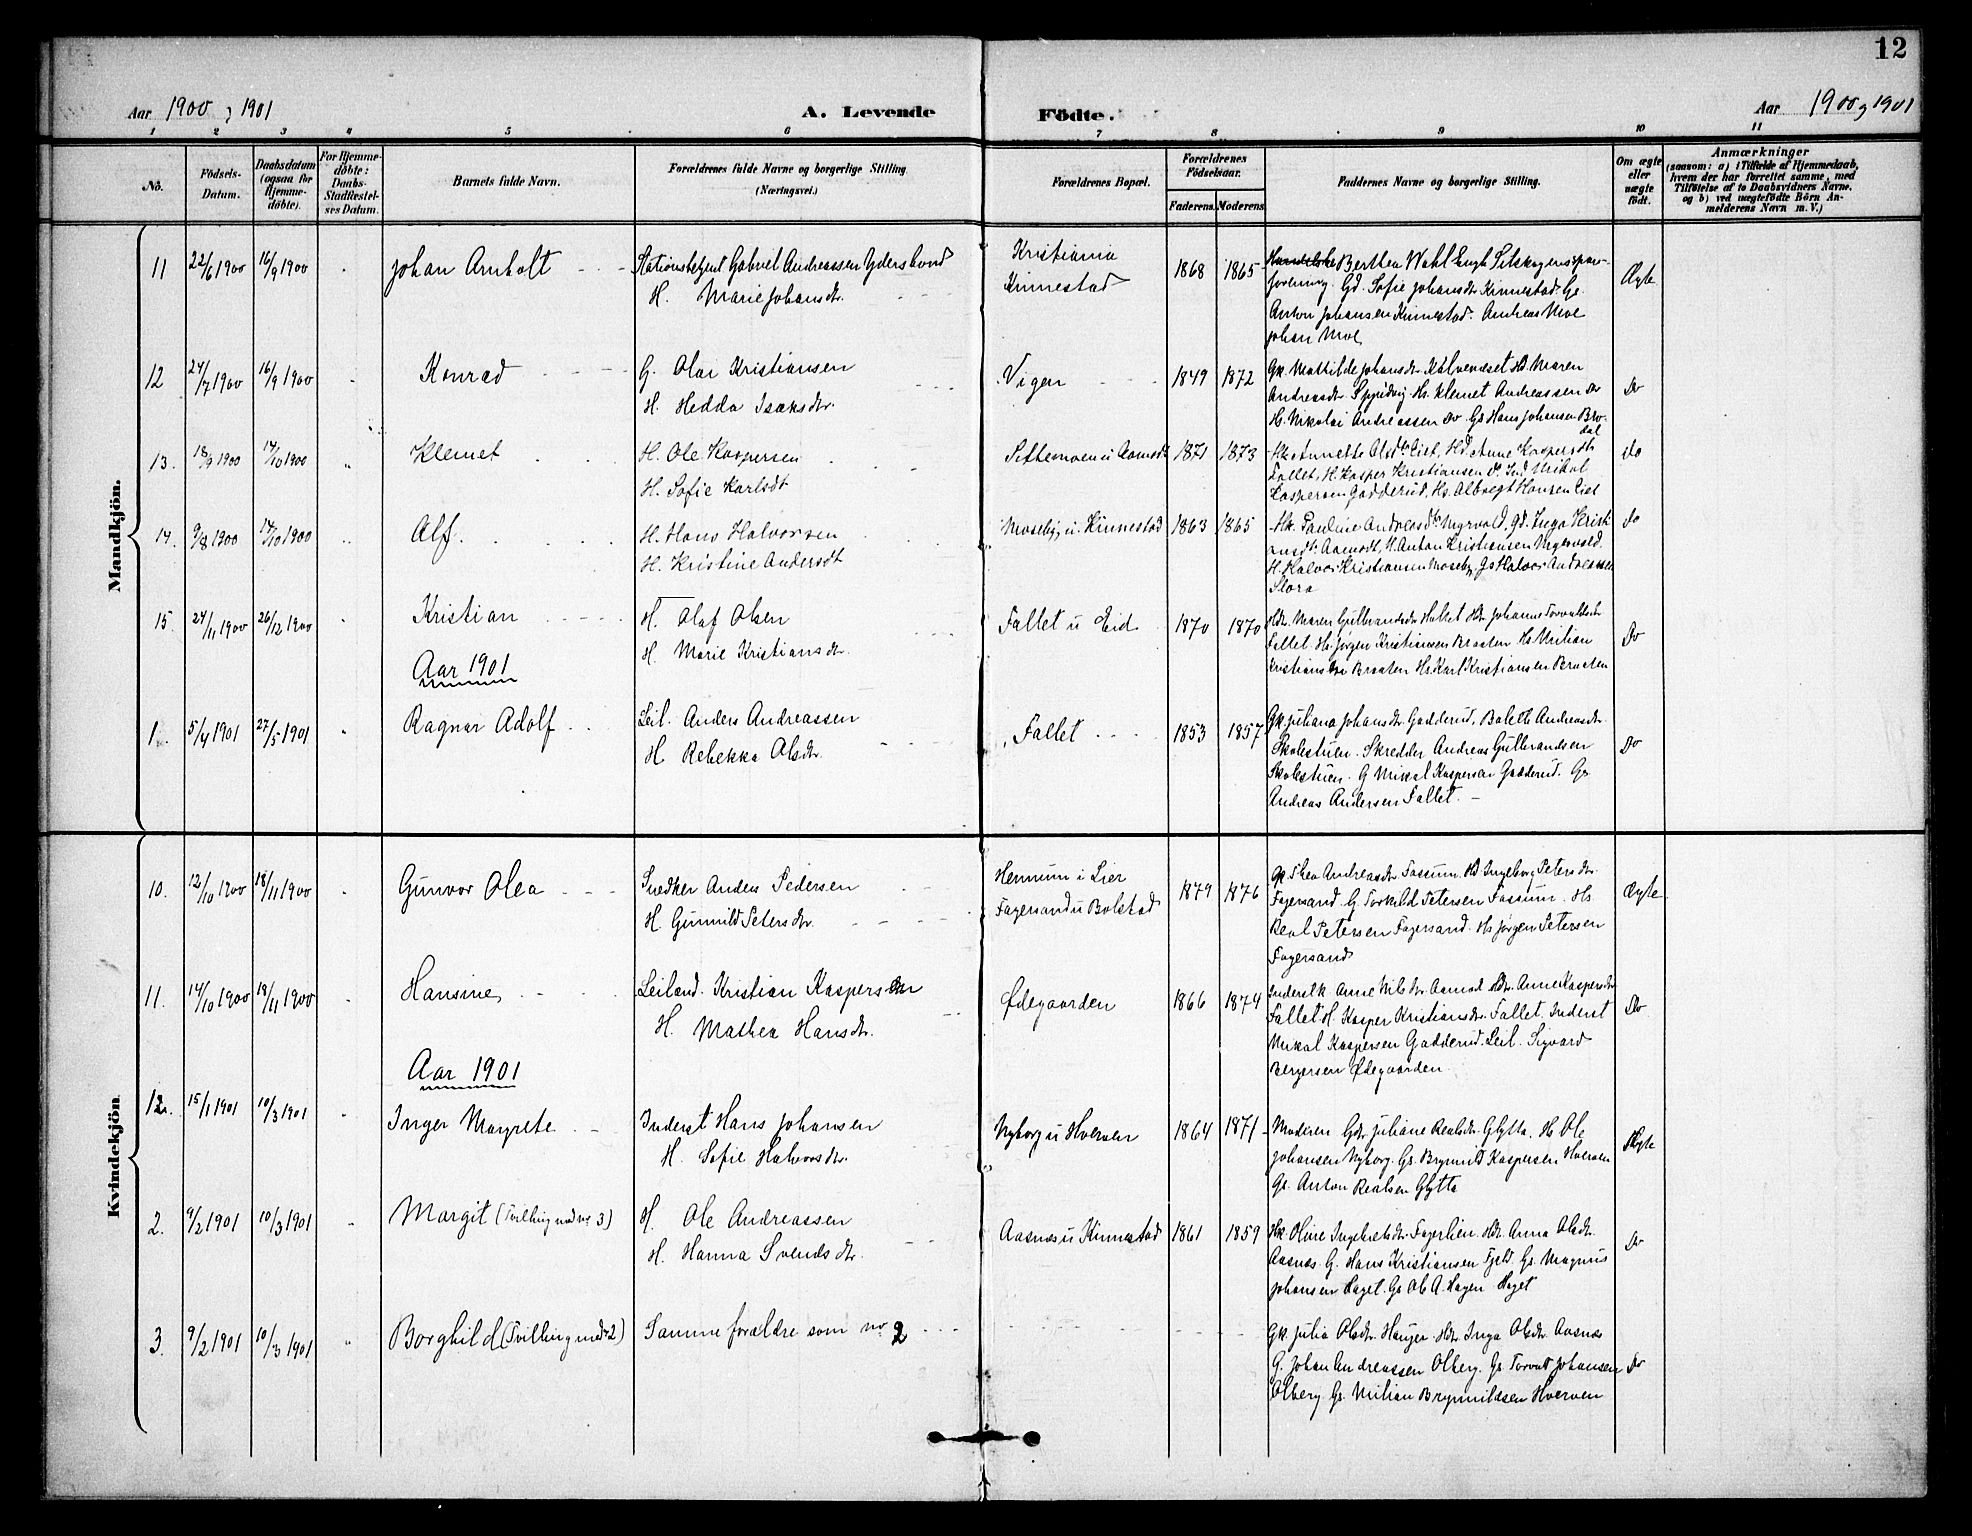 12
Aar 1900, 1901
A. Levende Födte.
Aar 1900, 1901
1 2 3 4 5 6 7 8 9 10 11
No.
Födsels-Datum.
Daabsdatum (ogsaa for Hjemme-döbte).
For Hjemme-döbte: Daabs-Stadfestel-ses Datum.
Barnets fulde Navn.
Forældrenes fulde Navne og borgerlige Stilling (Næringsvei.)
Forældrenes Bopæl.
Forældrenes Födselsaar.
Faderens. Moderens.
Faddernes Navne og borgerlige Stilling.
Om ægte eller uægte födt.
Anmærkninger
(saasom: a) i Tilfælde af Hjemmedaab, hvem der har forrettet samme, med Tilföielse af to Daabsvidners Navne, og b) ved uægtefödte Börn An-melderens Navn m. V.)
Mandkjön.
11 22/6 1900 16/9 1900 Johan Arnholt Stationsbetjent Gabriel Andreassen Yderstvond
H. Marie Johansdr.
Kristiania
Kinnestad
1868 1865
Berthea Wahl
Gd. Sofie Johansdr Kinnestad. Gs.
Anton Johansen Kinnestad. Andreas Moe
Johan Moe
Ægte
12 24/7 1900 16/9 1900 Konrad G. Olai Kristiansen
H. Hedda Isaksdr.
Vigen 1849 1872
Gk. Mathilde Johansdr Kalveneset Hd. Maren
Andreasdr. Hs. Klemet Andreassen Do
Hs. Nikolai Andreassen Do Gs Hans Johansen Bro-
dal
Do
13. 18/9 1900 14/10 1900 Klemet H. Ole Kaspersen
H. Sofie Karlsdt
Sittemoen u Aamodt 1871 1873
Hk Annette Olsdtr Eiet, Hd. Anne Kaspersdtr
Fallet, H. Kasper Kristiansen do Ind Mikal
Kaspersen Gadderud, Hs. Albregt Hansen Eiet
do
14. 9/8 1900 14/10 1900 Alf. H. Hans Halvorsen
H. Kristine Andersdt
Moseby u Kinnestad 1863 1865
Hk. Pauline Andreasdtr Myrvold, gd. Inga Kristi-
ansdtr Aamodt, H. Anton Kristiansen Myrvold.
H. Halvor Kristiansen Moseby, Gs Halvor Andreassen
Slora
do
15. 24/11 1900 26/12 1900 Kristian H. Olaf Olsen
H. Marie Kristiansdr.
Fallet u Eid 1870 1870
Hdr. Maren Gulbrandsdr Hullet Hdr Johanne Torvaldsdr
Fallet. Hs. Jørgen Kristiansen Braaten Hs. Milian
Kristiansen Braaten Hs. Karl Kristiansen Braaten
Do
Aar 1901
1. 5/4 1901 27/5 1901 Ragnar Adolf Leil. Anders Andreassen
H Rebekka Olsdr.
Fallet 1853 1857
Gk. Juliana Johansdr. Gadderud, Bolette Andreasdr.
Skolestuen. Skredder Andreas Gulbrandsen
Skolestuen. G Mikal Kaspersen Gadderud. Gs
Andreas Andersen Fallet.
Do
Kvindekjön.
10. 12/10 1900 18/11 1900 Gunvor Olea Snedker Anders Pedersen
H Gunnild Petersdr.
Hennum i Lier
Fagersand u Bolstad
1879 1876
Gk. Thea Andreasdr Fossum. Hd. Ingeborg Petersdr.
Fagersand. G Torkild Petersen Fossum. Hs.
Real Petersen Fagersand. Hs Jørgen Petersen
Fagersand
Ægte
11. 14/10 1900 18/11 1900 Hansine Leiland. Kristian Kaspersen
H. Mathea Hansdr.
Ødegaarden 1866 1874
Inderstk Anne Nilsdr. Aamod Hdr. Anne Kaspersdr
Fallet H. Kasper Kristiansdr. Fallet. Inderst
Mikal Kaspersen Gadderud. Leil. Sigvard
Bergersen Ødegaarden
Do
Aar 1901
1. 15/1 1901 10/3 1901 Inger Margrete Inderst Hans Johansen
H. Sofie Halvorsdr.
Nyborg u Hverven 1864 1871
Moderen Gdr. Juliane Realsdr. Glytta. H. Ole
Johansen Nyborg. Gs. Brynmild Kaspersen Hverven
Gs. Anton Realsen Glytta
Ægte
2. 9/2 1901 10/3 1901 Margit (Tvilling med no 3) H. Ole Andreassen
H. Hanna Svendsdr.
Aasnes u Kinnestad 1861 1859
Hk. Oline Ingebretsdr. Fagerlien. Hdr. Anna Olsdr.
Aasnes G. Hans Kristiansen Fjeld. Gs. Magnus
Johansen Haget. Gs Ole A. Hagen Haget
Do
3. 9/2 1901 10/3 1901 Borghild (Tvilling med 2) Samme forældre som no 2
Gk. Julia Olsdr. Hauger. Hdr. Inga Olsdr. Aasnes
G. Johan Andreassen Olberg. Gs. Torvald Johansen
Olberg Gs. Milian Brynmildsen Hverven
Do